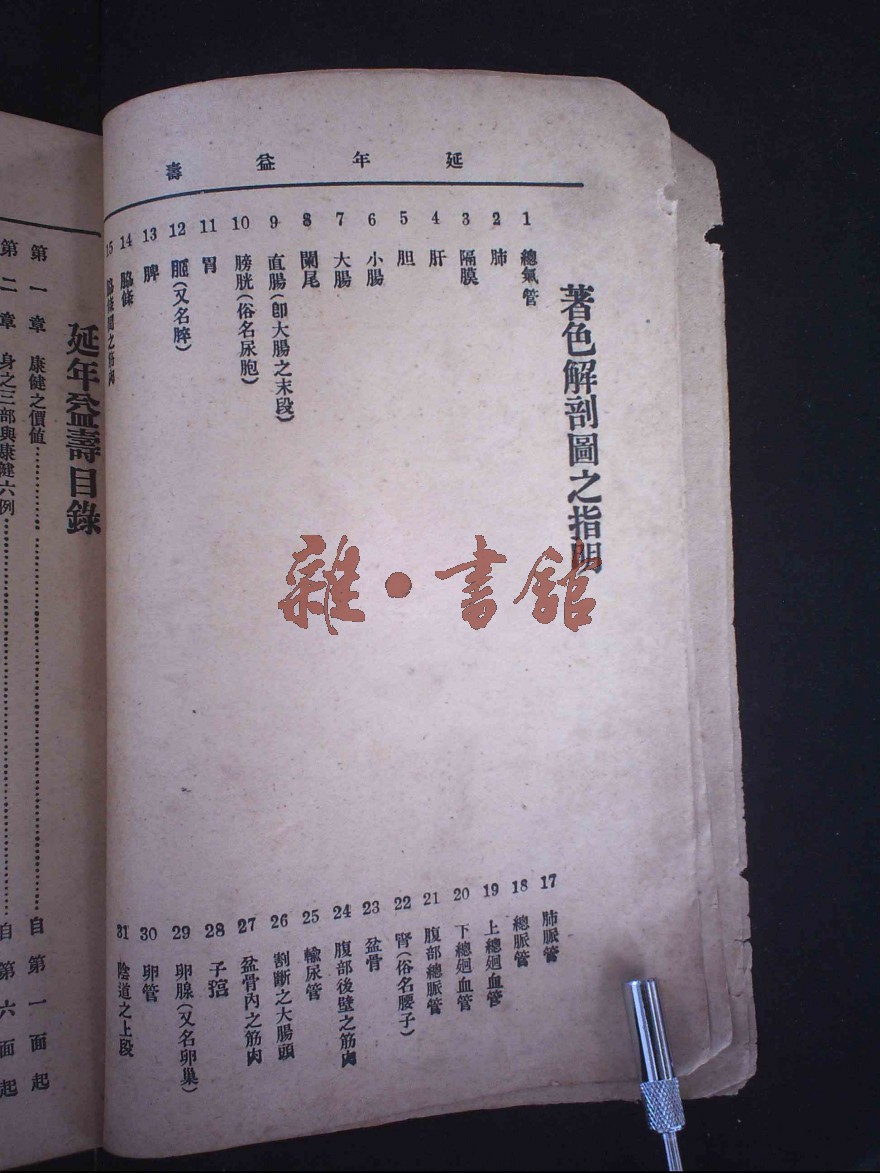 延年益壽
著色解剖圖之指明
1 總氣管
2 肺
3 隔膜
4 肝
5 胆
6 小腸
7 大腸
8 闌尾
9 直腸(卽大腸之末段)
10 膀胱(俗名尿胞)
11 胃
12 (又名脺)
13 脾
14 脇條
15 脇條間之筋肉
17 肺脈管
18 總脈管
19 上總廻血管
20 下總廻血管
21 腹部總脈管
22 腎(俗名腰子)
23 盆骨
24 腹部後壁之筋肉
25 輸尿管
26 割斷之大腸頭
27 盆骨內之筋肉
28 子宮
29 卵腺(又名卵巢)
30 卵管
31 陰道之上段
延年益壽目錄
第一章 康健之價値 自第一面起
第二章 身之三部與康健六例 自第六面起
雜·書館